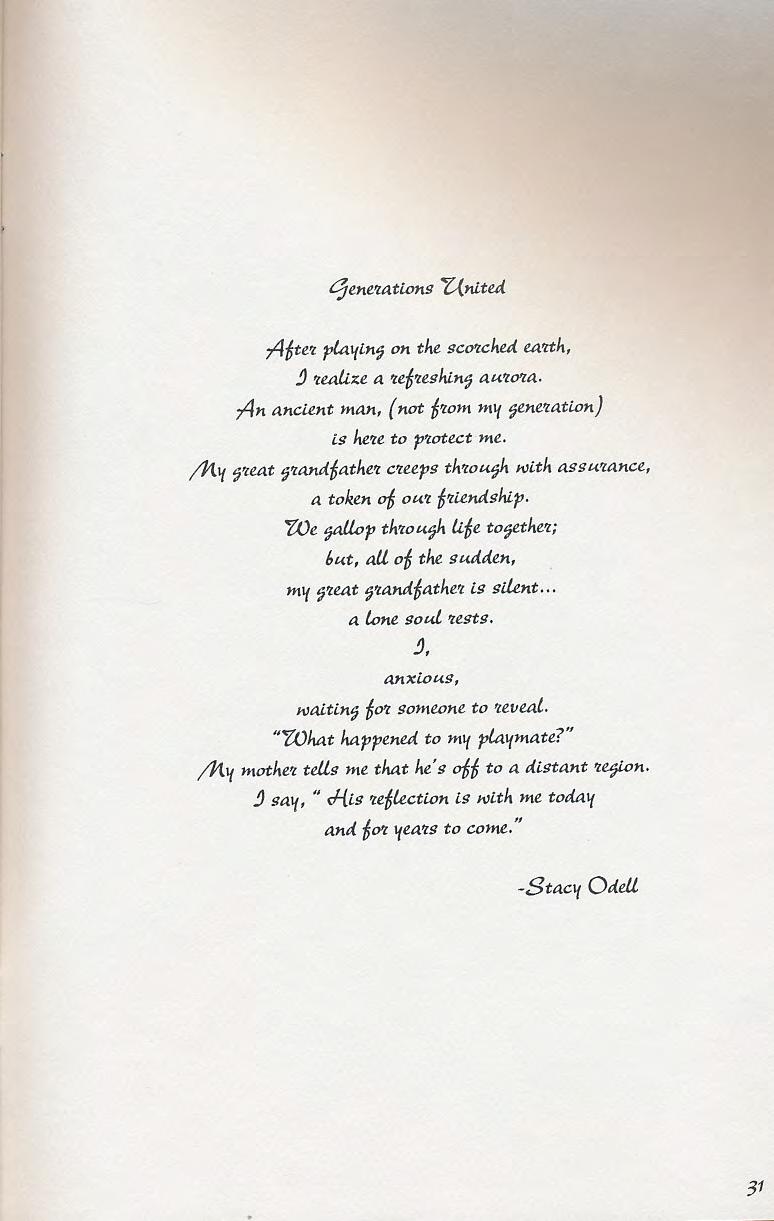 Generations United
After playing on the scorched earth,
I realize a refreshing aurora.
An ancient man, (not from my generation)
is here to protect me.
My great grandfather creeps through with assurance,
a token of our friendship.
We gallop through life together;
but, all of the sudden,
my great grandfather is silent...
a lone soul rests.
I,
anxious,
waiting for someone to reveal.
"What happened to my playmate?"
My mother tells me that he's off to a distant region.
I say, " His reflection is with me today
and for years to come."
-Stacy Odell
31